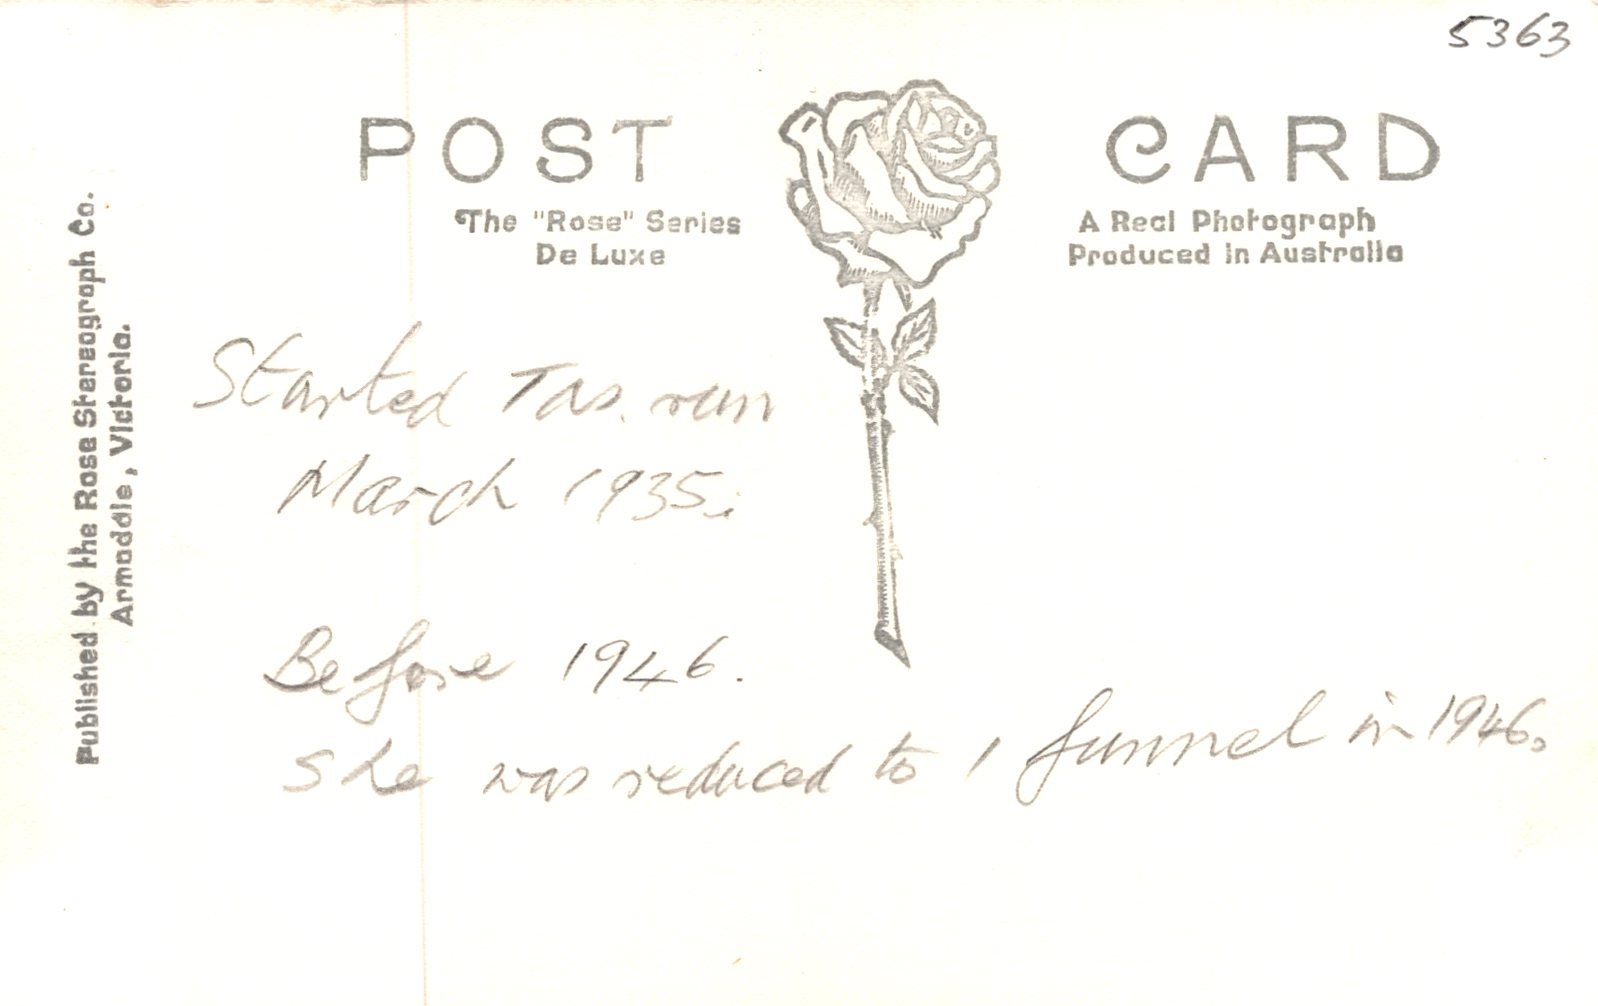 5363
POST CARD
The "Rose" Series
De Luxe
A Real Photograph
Produced in Australia
Published by the Rose Stereograph Co.
Armadale, Victoria.
Started Tas. run
March 1935.
Before 1946.
She was reduced to 1 funnel in 1946.